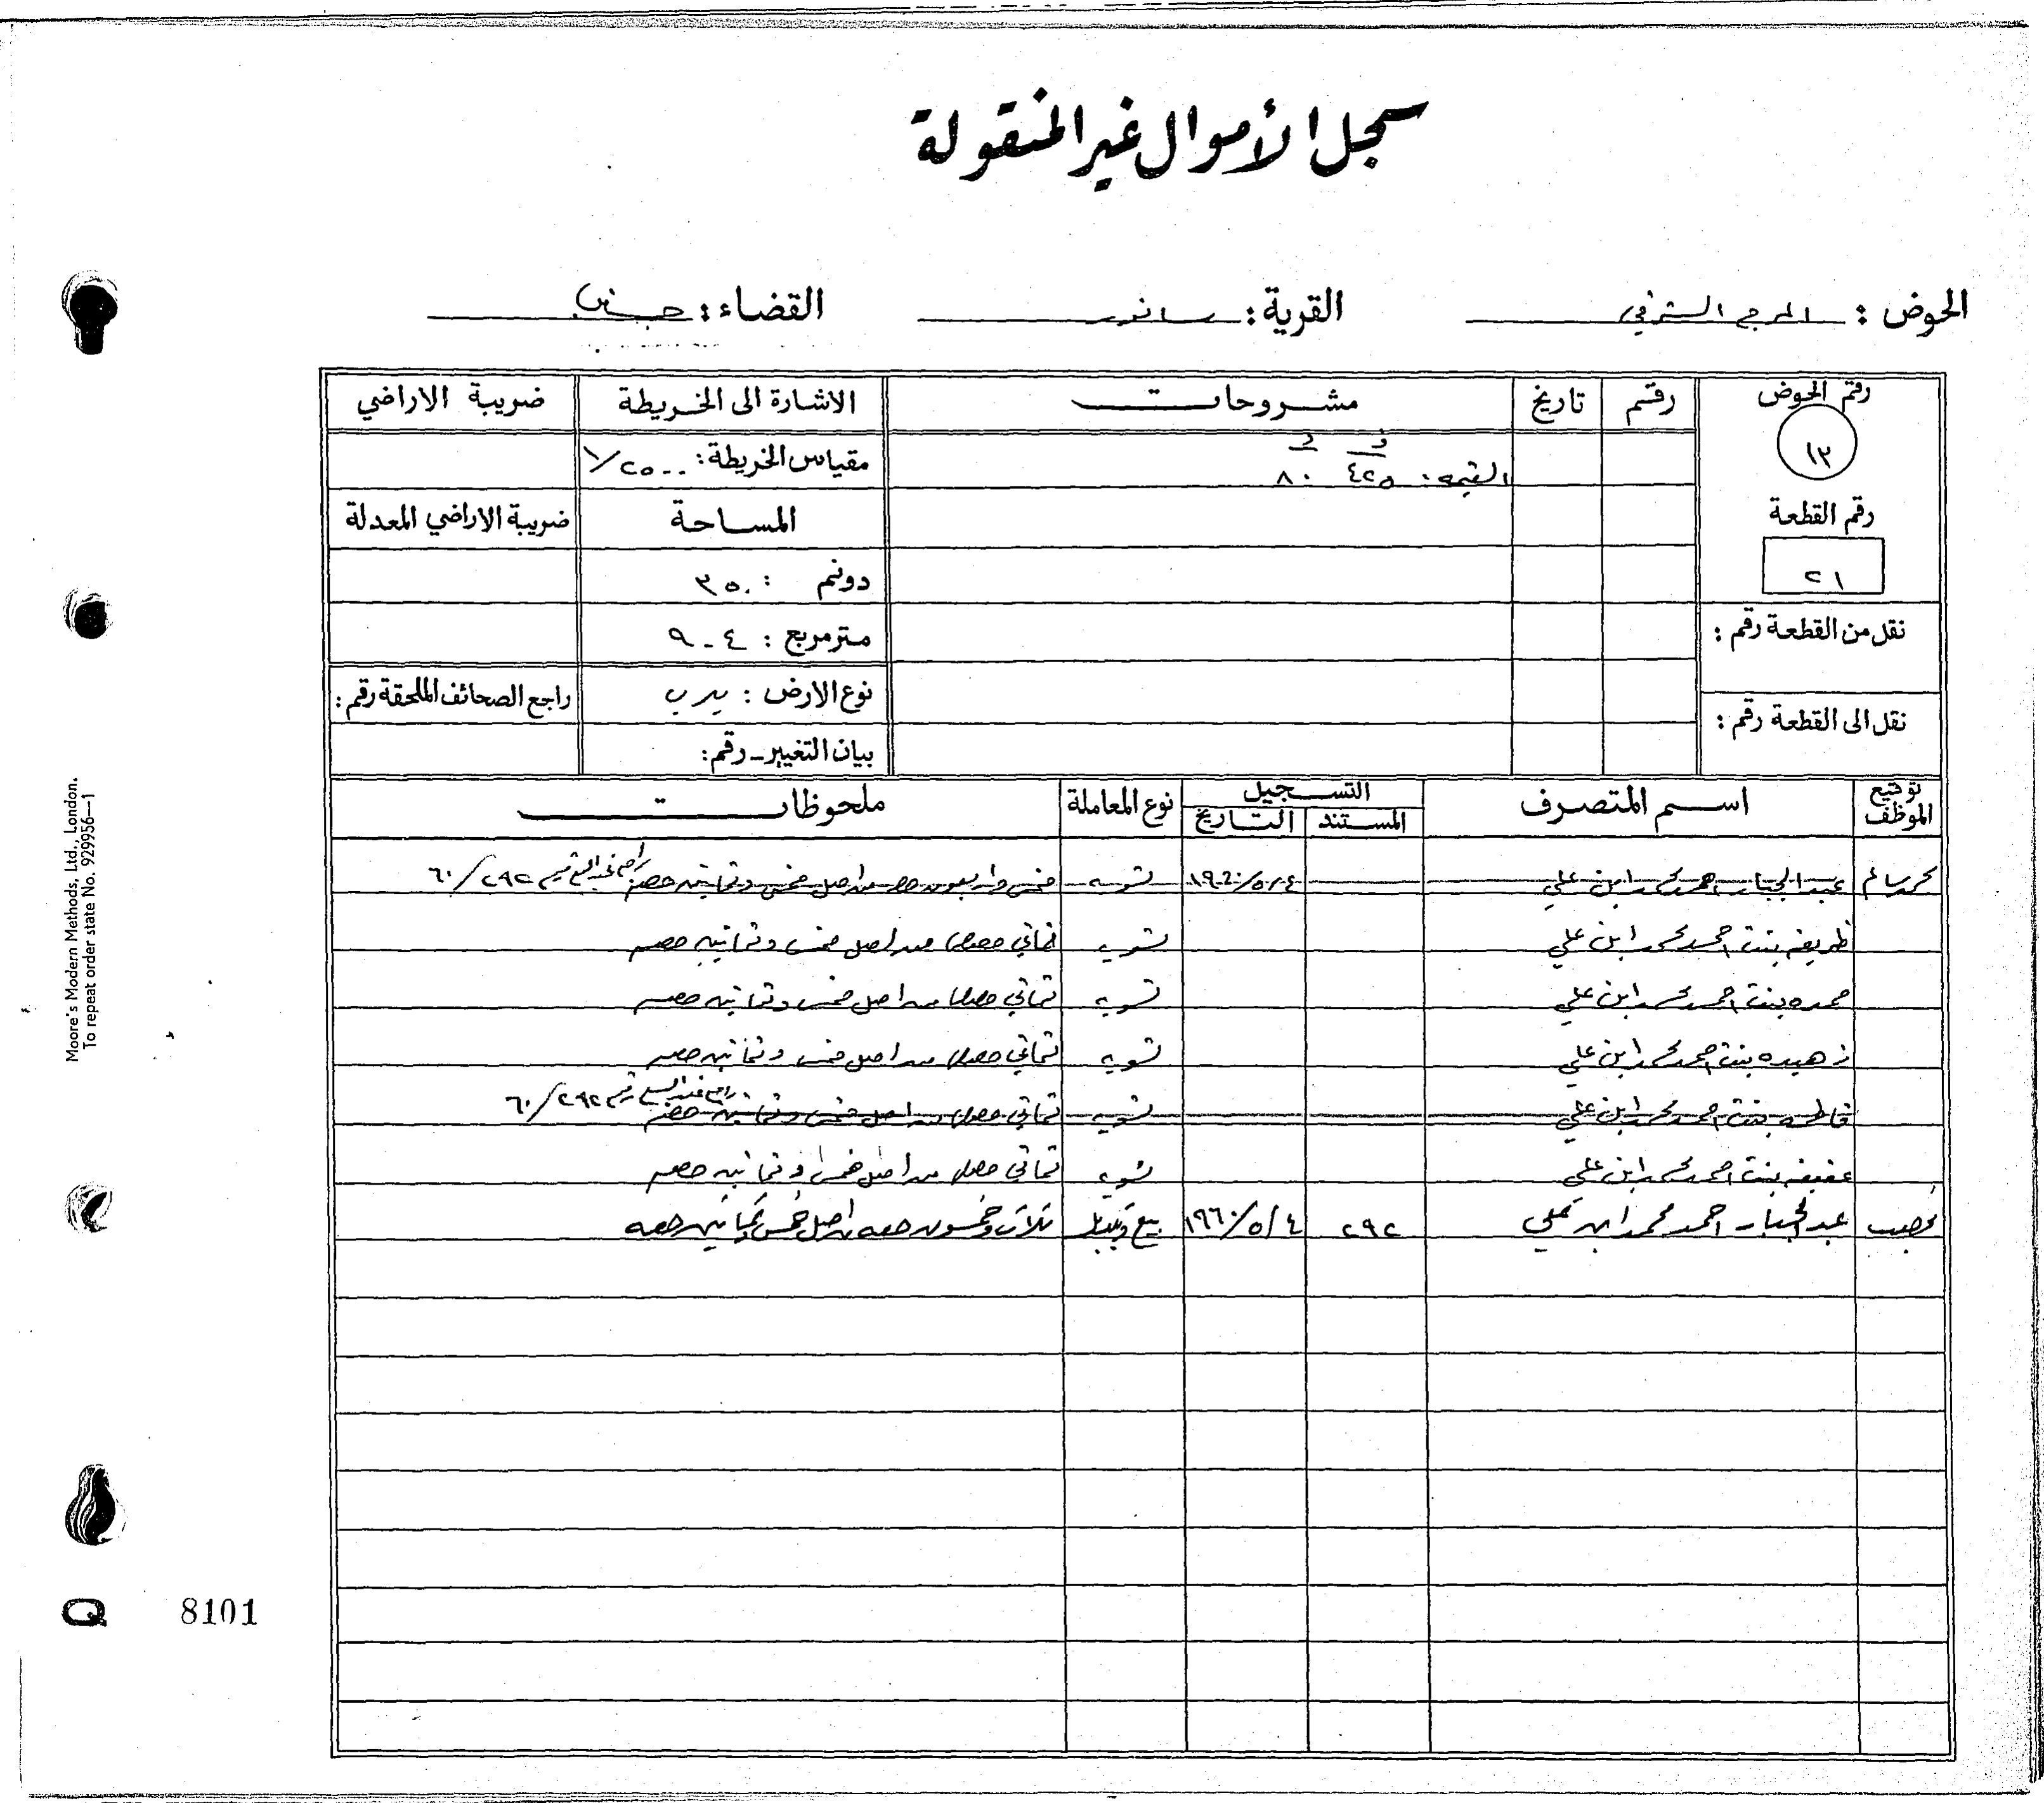 سجل الأموال غير المنقولة
الحوض : المرج الشرقي القرية : سانور القضاء : جنين
رقم الحوض رقم تاريخ مشروحات الاشارة الى الخريطة ضريبة الاراضي
١٣
ف د
القيمه : ٤٢٥ ٨٠
مقياس الخريطة : ١/٢٥٠٠
رقم القطعة المساحة ضريبة الاراضي المعدلة
٢١
دونم : ٣٥
نقل من القطعة رقم :
متر مربع : ٩٠٤
نوع الارض : راجع الصحائف الملحقة رقم :
نقل الى القطعة رقم :
بيان التغيير - رقم :
توقيع الموظف اسم المتصرف التسجيل نوع المعاملة ملحوظات
المستند التاريخ
محمد سالم عبد الجبار احمد محمد ابن علي ١٩٦٠/٥/٤ تسويه خمس واربعون حصه من اصل خمس وثمانين حصه راجع عقد البيع رقم ٦٠/٢٩٢
ظريفه بنت احمد محمد ابن علي تسويه ثماني حصص من اصل خمس وثمانين حصه
حمده بنت احمد محمد ابن علي تسويه ثماني حصص من اصل خمس وثمانين حصه
زهيده بنت احمد محمد ابن علي تسويه ثماني حصص من اصل خمس وثمانين حصه
فاطمه بنت احمد محمد ابن علي تسويه ثماني حصص من اصل خمس وثمانين حصه راجع عقد البيع رقم ٦٠/٢٩٢
عفيفه بنت احمد محمد ابن علي تسويه ثماني حصص من اصل خمس وثمانين حصه
عبد الجبار احمد محمد ابن علي ٢٩٢ ١٩٦٠/٥/٤ بيع ثلاث وخمسون حصه من اصل خمس وثمانين حصه
Moore's Modern Methods, Ltd., London.
To repeat order state No. 929956—1
Q 8101